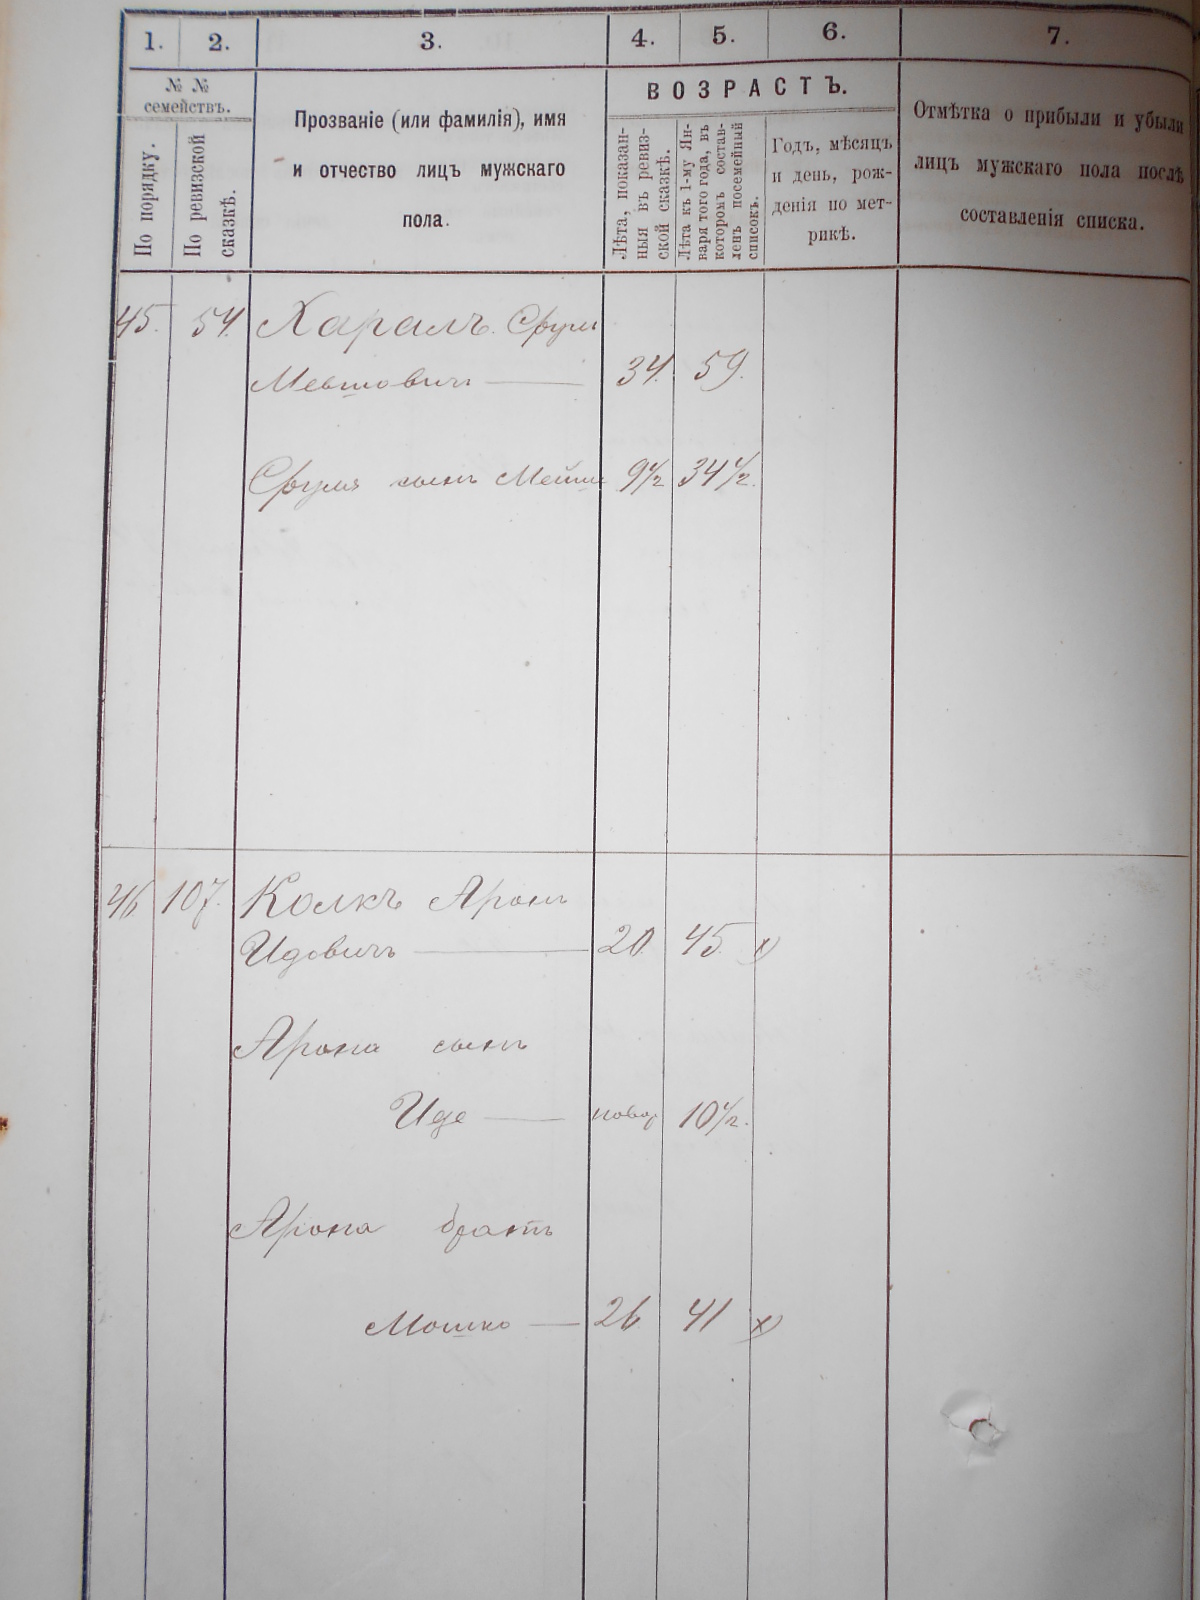 1. 2. 3. 4. 5. 6. 7.
№ №
семействъ.
По порядку.
По ревизской
сказкѣ.
Прозваніе (или фамилія), имя
и отчество лицъ мужскаго
пола.
ВОЗРАСТЪ.
Лѣта, показан-
ныя въ ревиз-
ской сказкѣ.
Лѣта къ 1-му Ян-
варя того года, въ
которомъ состав-
ленъ посемейный
списокъ.
Годъ, мѣсяцъ
и день, рож-
денія по мет-
рикѣ.
Отмѣтка о прибыли и убыли
лицъ мужскаго пола послѣ
составленія списка.
45. 54. Хараль. Сруль
34. 59.
Сруля сынъ 9½ 34½.
46. 107. Колкъ Аронъ
Идовичъ 20. 45. х
Арона сынъ
Иде новор 10½.
Арона братъ
Мошко 26 41 х